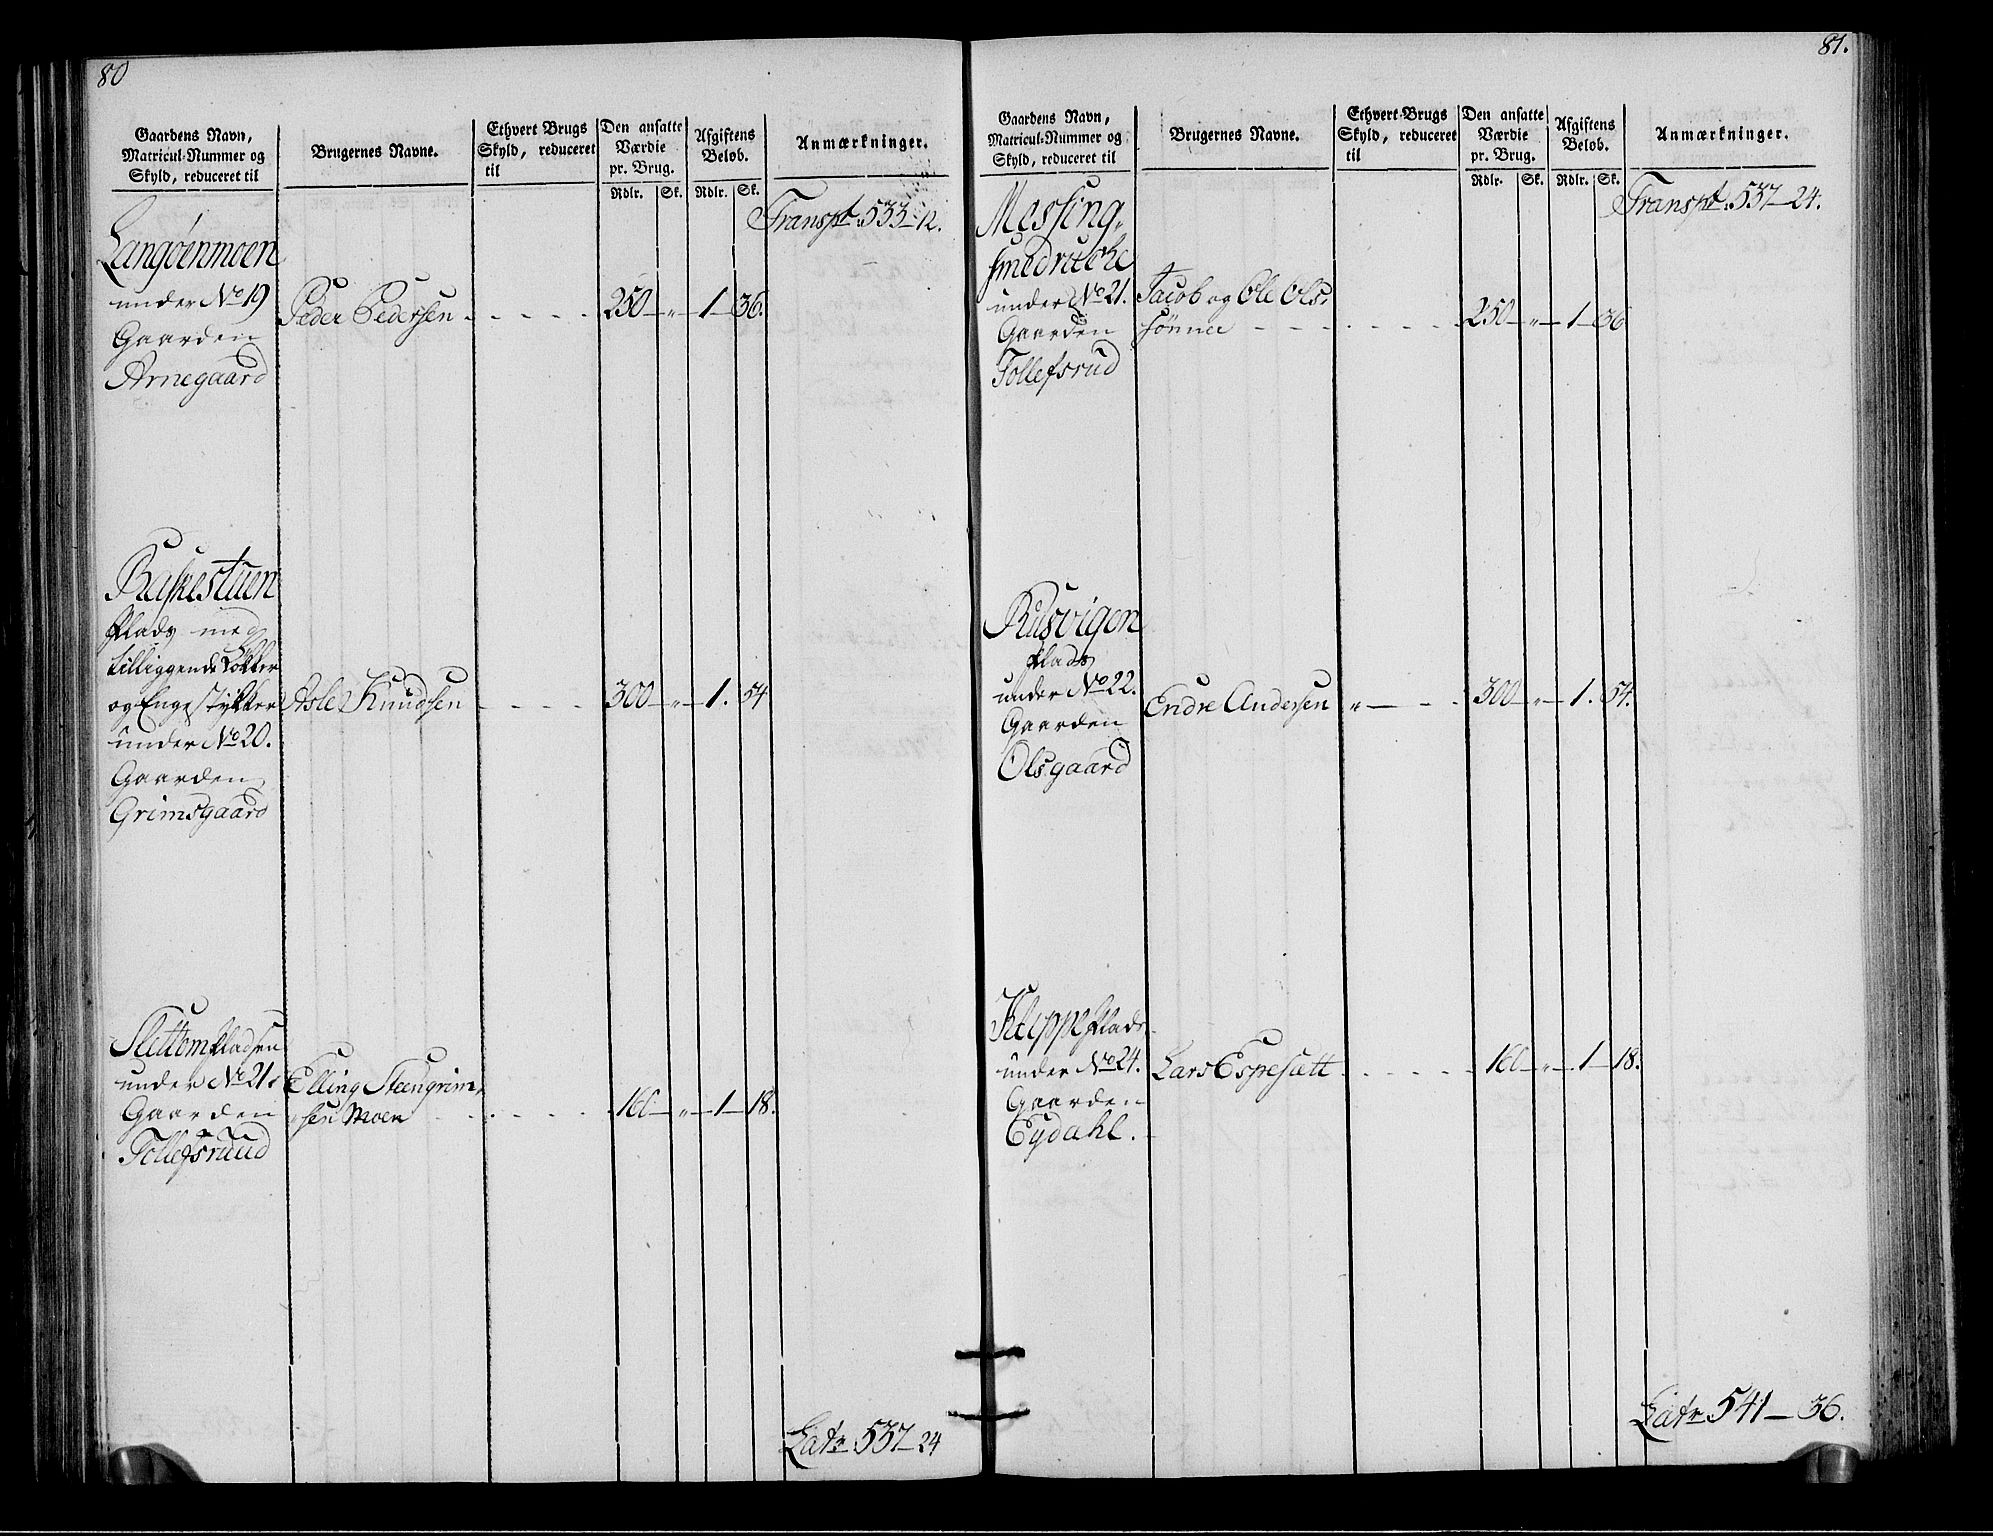 80
Gaardens Navn,
Matricul-Nummer og
Skyld, reduceret til
Brugernes Navne.
Ethvert Brugs
Skyld, reduceret
til
Den ansatte
Værdie
pr. Brug.
Rdlr. Sk.
Afgiftens
Beløb.
Rdlr. Sk.
Anmærkninger.
Transpt. 533-12.
Langøenmoen
under No 19
Gaarden
Arnegaard
Peder Pedersen - - - - 250 - „ - 1 - 36.
Baskestuen
Plads med
tilliggende Løkker
og Engestykker
under No 20.
Gaarden
Grimsgaard
Asle Knudsen - - - - 300 - „ - 1. 54
Slettem Pladsen
under No 21
Gaarden
Tollefsruud
Elling Steengrim-
sen Moen - - - - 160 - „ - 1 - 18.
Latr. 537-24
81.
Gaardens Navn,
Matricul-Nummer og
Skyld, reduceret til
Brugernes Navne.
Ethvert Brugs
Skyld, reduceret
til
Den ansatte
Værdie
pr. Brug.
Rdlr. Sk.
Afgiftens
Beløb.
Rdlr. Sk.
Anmærkninger.
Transpt. 537-24.
Messing-
under No 21.
Gaarden
Tollefsrud
Jacob og Ole Ols-
sønner - - - - 250 - „ - 1 - 36
Rusvigen
Plads
under No 22.
Gaarden
Olsgaard
Endre Andersen „ - - - 300 - „ - 1. 54.
Klippe Plads
under No 24.
Gaarden
Eydahl.
Lars Espesett - - - - 160 - „ - 1 - 18.
Latr. 541 - 36.